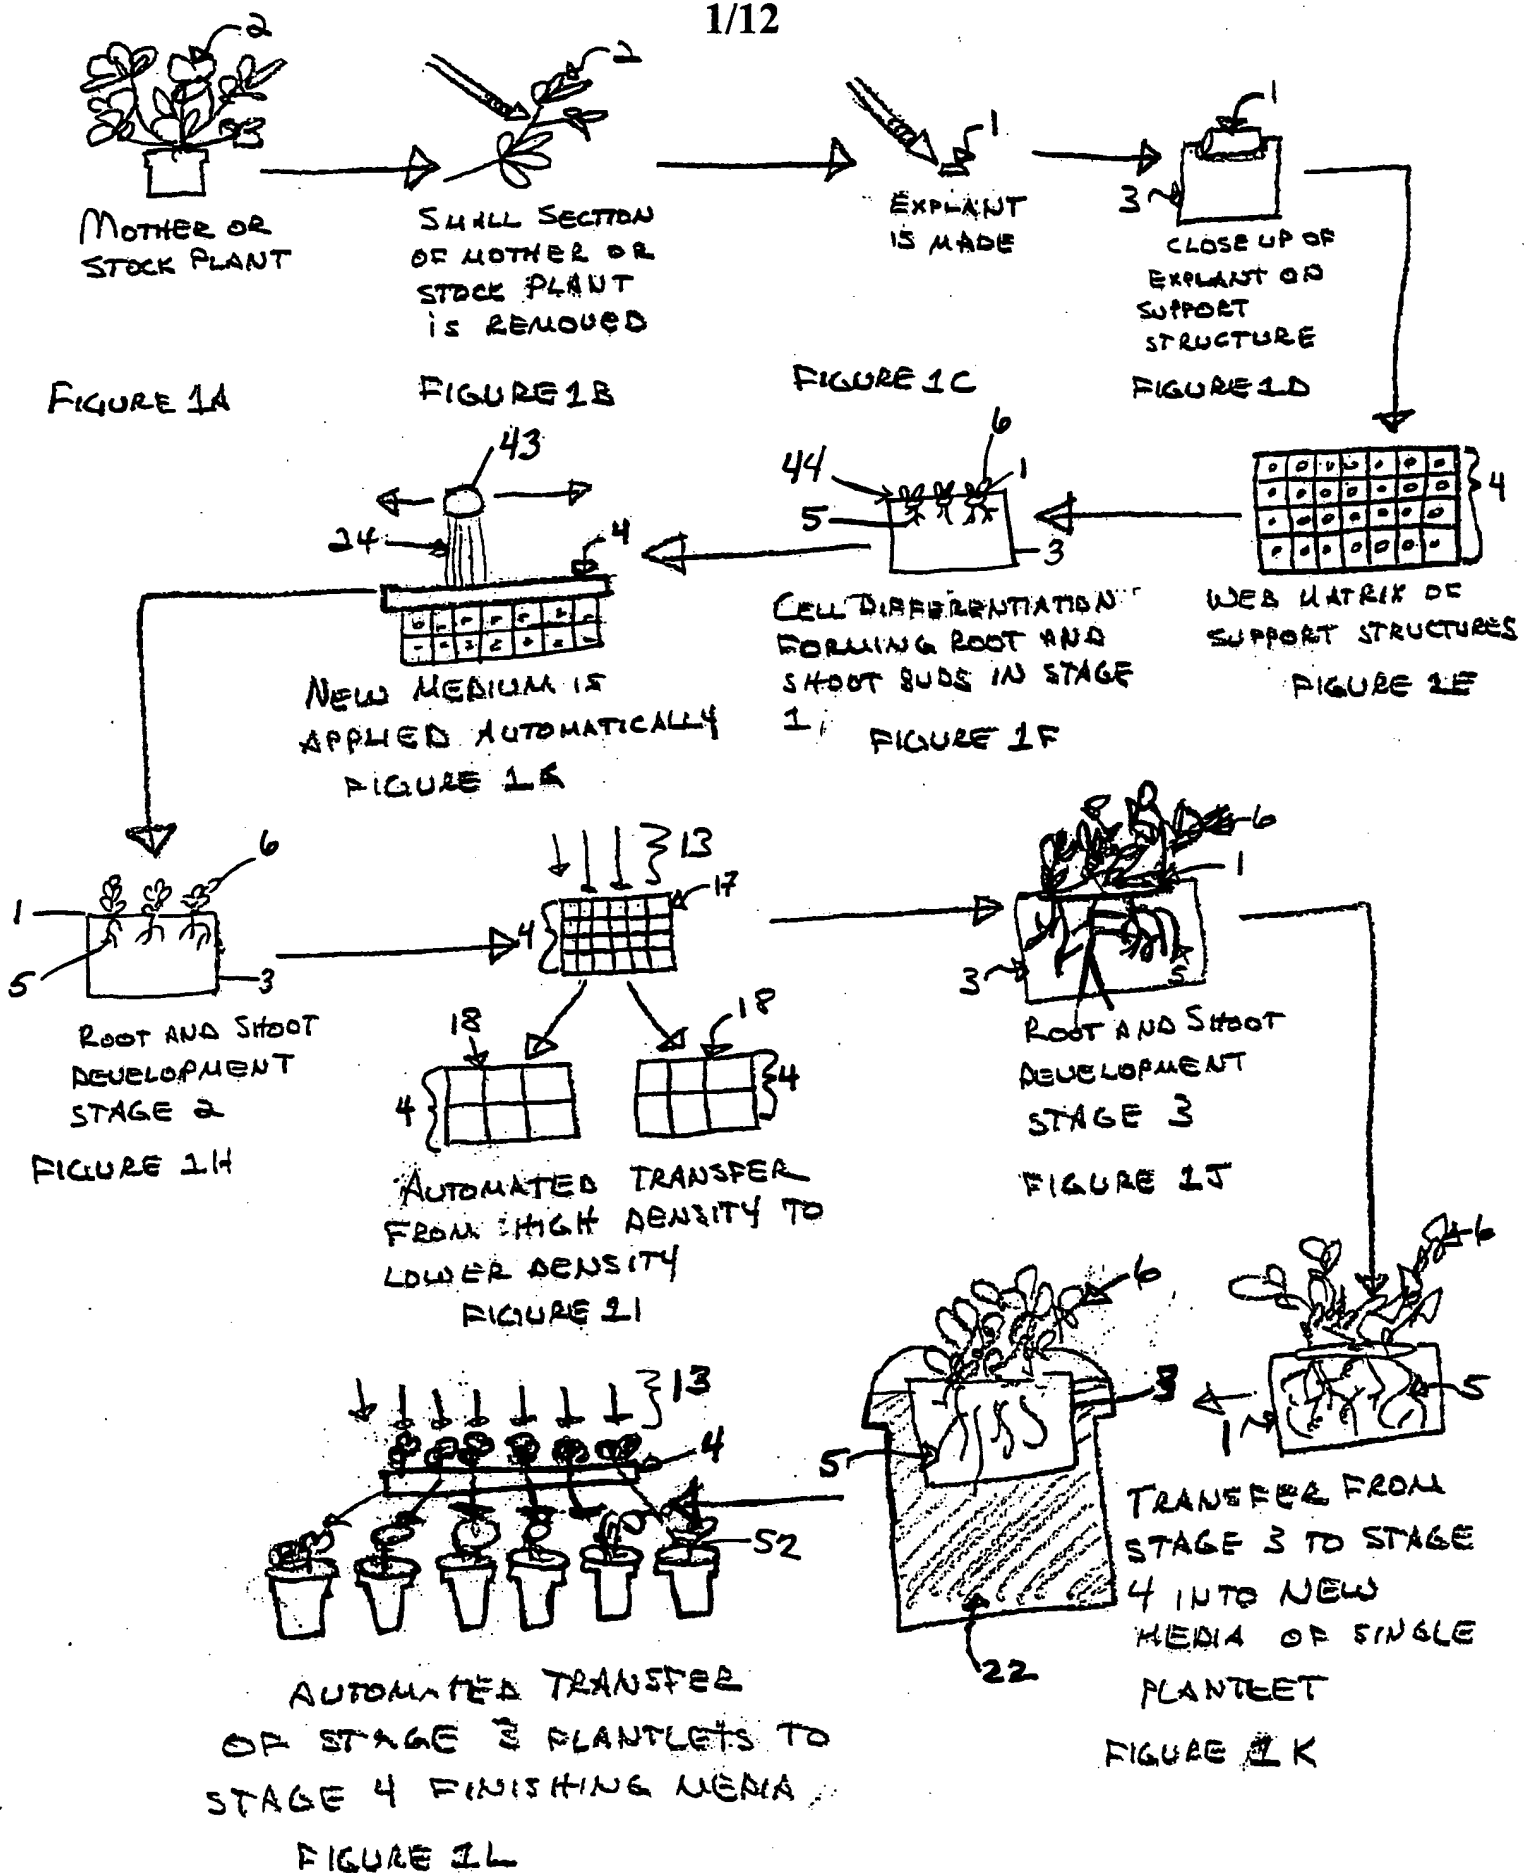 1/12
2
MOTHER OR
STOCK PLANT
FIGURE 1A
2
SMALL SECTION
OF MOTHER OR
STOCK PLANT
IS REMOVED
FIGURE 1B
1
EXPLANT
IS MADE
FIGURE 1C
1
3
CLOSE UP OF
EXPLANT ON
SUPPORT
STRUCTURE
FIGURE 1D
4
WEB MATRIX OF
SUPPORT STRUCTURES
FIGURE 1E
6
44
1
5
3
CELL DIFFERENTIATION
FORMING ROOT AND
SHOOT BUDS IN STAGE
1,
FIGURE 1F
43
24
4
NEW MEDIUM IS
APPLIED AUTOMATICALLY
FIGURE 1G
6
1
5
3
ROOT AND SHOOT
DEVELOPMENT
STAGE 2
FIGURE 1H
13
17
4
18
18
4
4
AUTOMATED TRANSFER
FROM HIGH DENSITY TO
LOWER DENSITY
FIGURE 1I
6
1
3
5
ROOT AND SHOOT
DEVELOPMENT
STAGE 3
FIGURE 1J
6
5
1
TRANSFER FROM
STAGE 3 TO STAGE
4 INTO NEW
MEDIA OF SINGLE
PLANTLET
FIGURE 1K
6
3
5
22
13
4
52
AUTOMATED TRANSFER
OF STAGE 3 PLANTLETS TO
STAGE 4 FINISHING MEDIA
FIGURE 1L